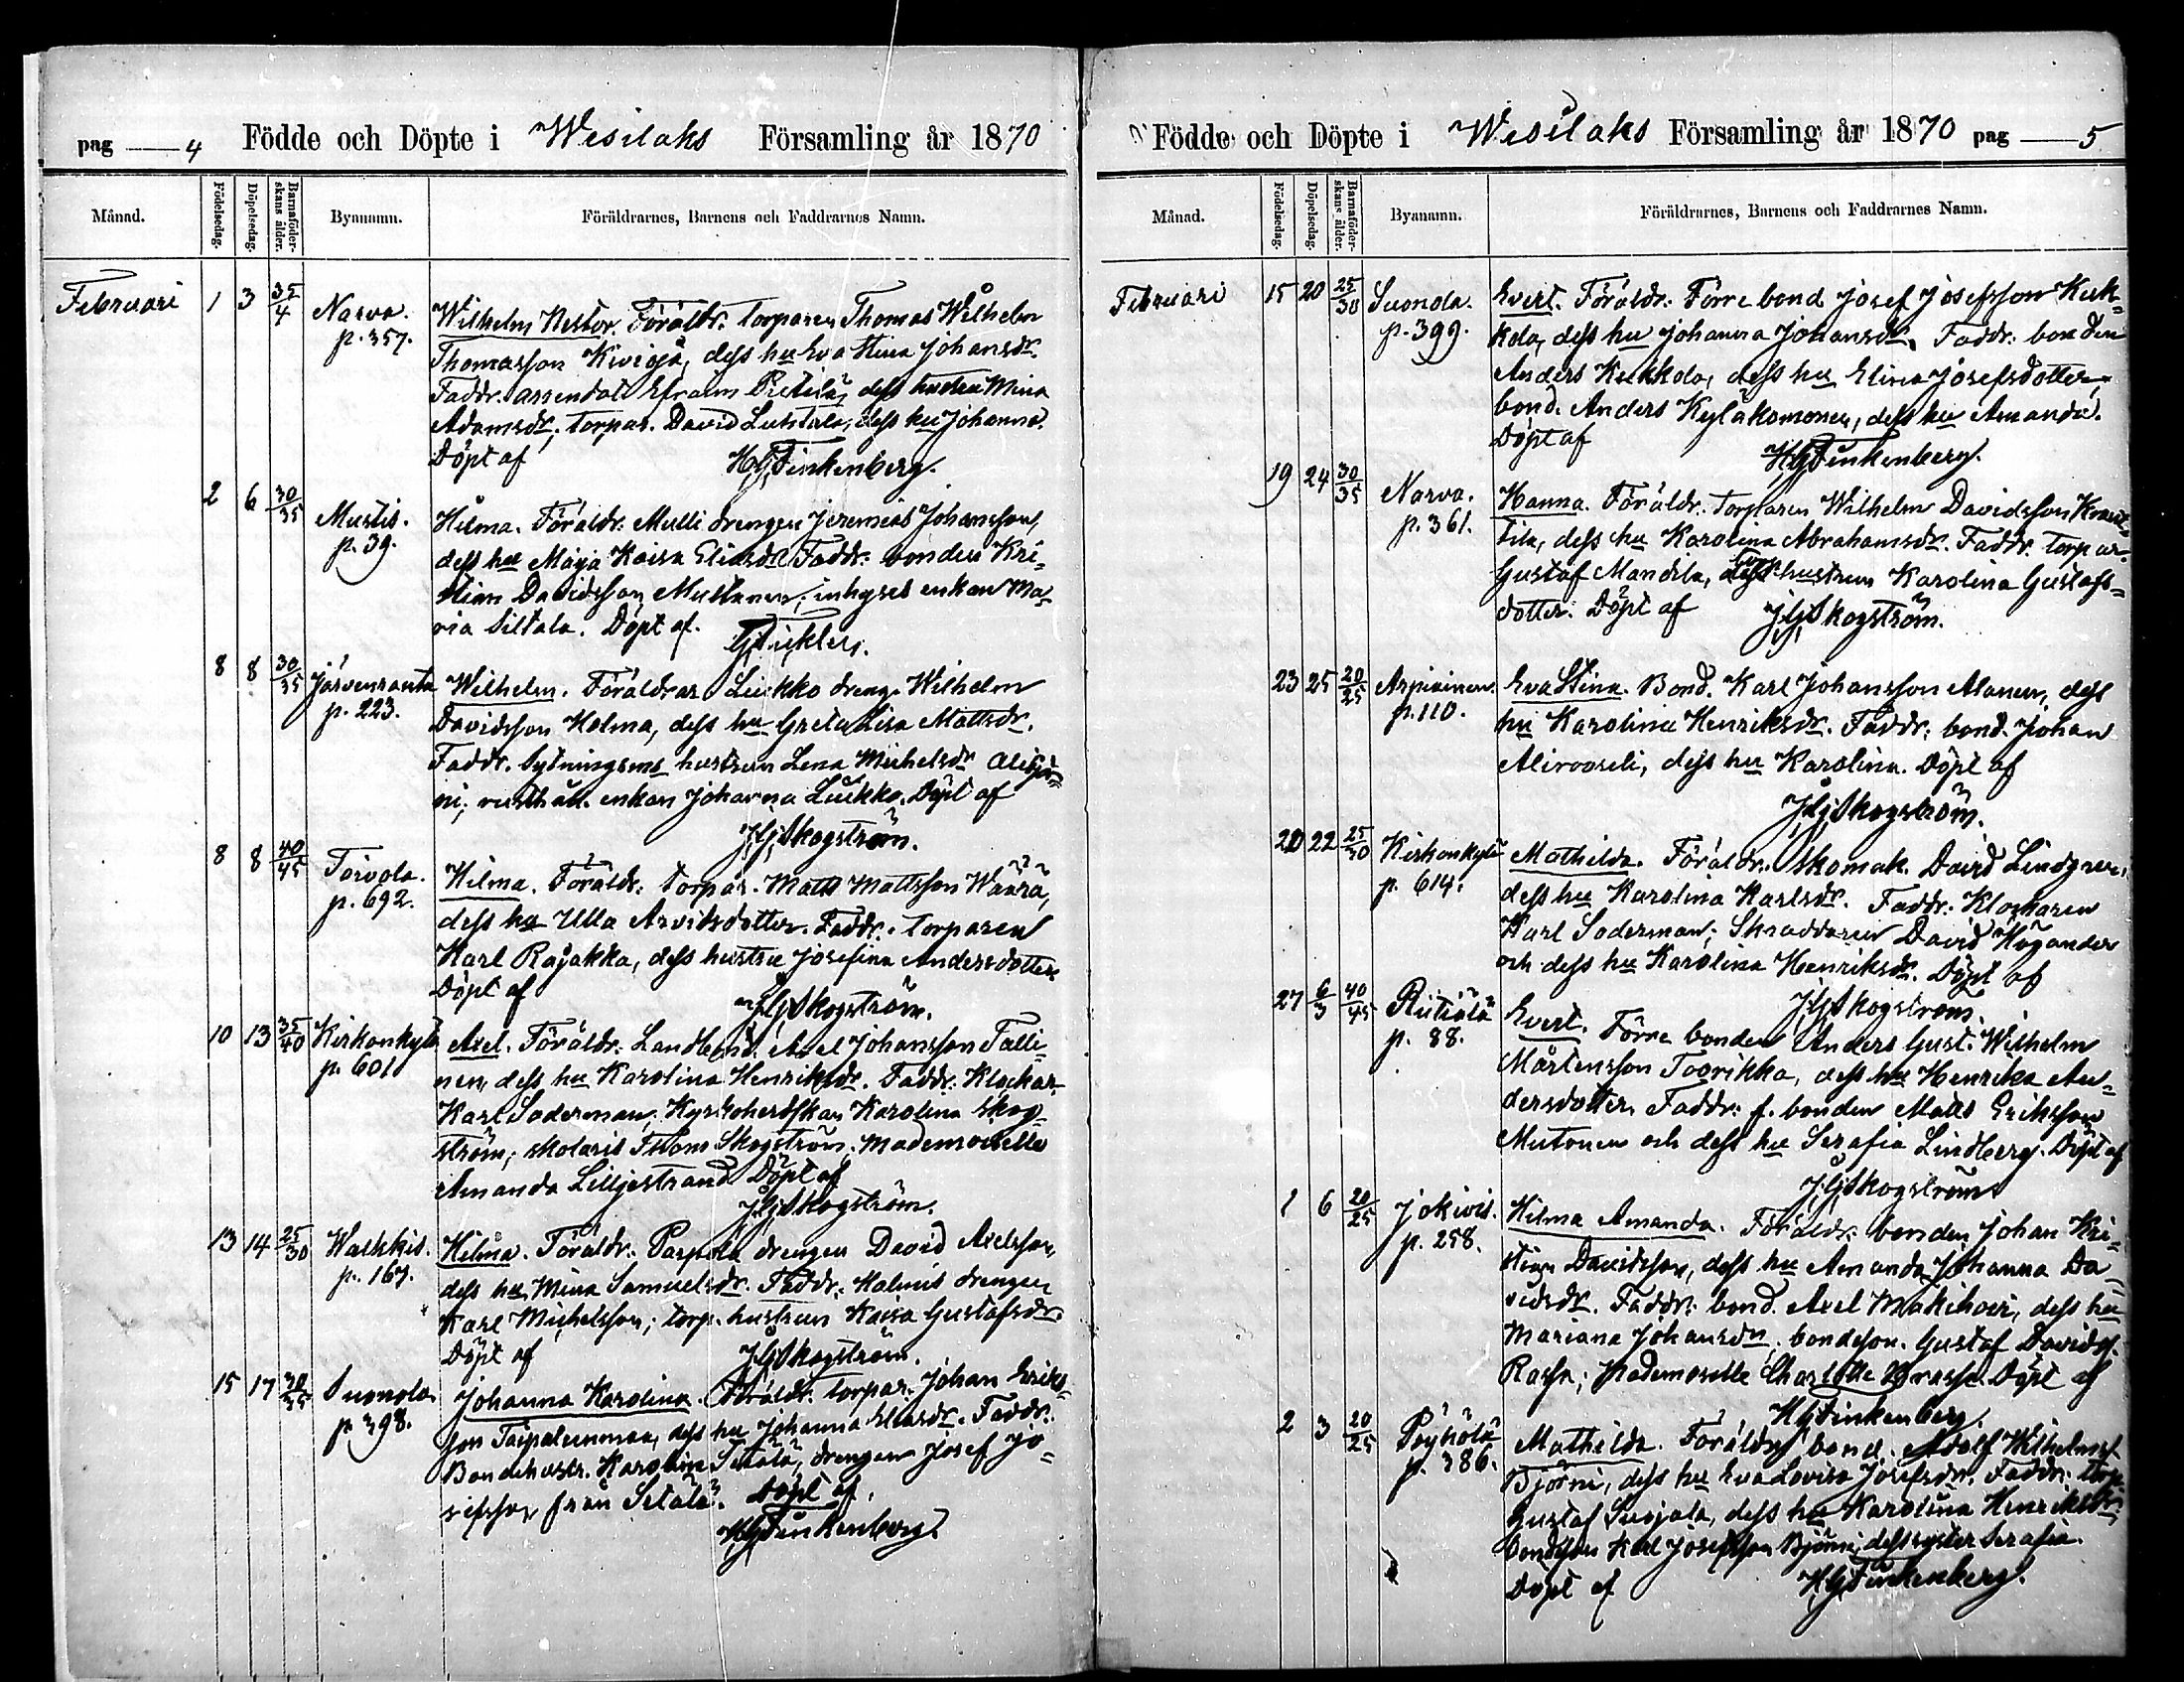 pag 4 Födde och Döpte i Wesilaks Församling år 1870
Månad. Födelsedag. Döpelsedag. Barnaföderskans ålder. Byanamn. Föräldrarnes, Barnens och Faddrarnes Namn.
Februari 1 3 35/4 Narva. p. 357.
Wilhelm Nestor. Föräldr. torparen Thomas Wilhelm
Thomasson Kivioja, dess hu Eva Stina Johansdr.
Faddr. Efraim Pietilä, dess hustru Mina
Adamsdr; torpar. David Luhtala, dess hu Johanna.
Döpt af HGFinkenberg.
2 6 30/35 Mustis. p. 39.
Hilma. Föräldr. Mulli drengen Jeremias Johansson,
dess hu Maja Kaisa Eliasdr Faddr: bonden Kri-
stian Davidsson Mustanen; inhyses enkan Ma-
ria Siltala. Döpt af.
8 8 30/35 Järvenranta p. 223.
Wilhelm. Föräldrar Liukko dreng. Wilhelm
Davidsson Holma, dess hu Greta Lisa Mattsdr.
Faddr. sytningsm. hustrun Lena Michelsdr
ni; rusthåll. enkan Johanna Liukko. Döpt af
JGSkogström.
8 8 40/45 Toivola. p. 692.
Hilma. Föräldr: torpar. Matts Mattsson Waara,
dess hu Ulla Arvidsdotter. Faddr: torparen
Karl Rajakka, dess hustru Josefina Andersdotter
Döpt af JGSkogström.
10 13 35/40 Kirkonkylä p. 601
Axel. Föräldr: Landtbruk. Axel Johansson Talli-
nen, dess hu Karolina Henriksdr. Faddr: Klockar.
Karl Soderman; Kyrkoherdskan Karolina Skog-
ström; skolaris Thom Skogström; Mademoiselle
Amanda Lilljestrand Döpt af
JGSkogström.
13 14 25/30 Walkkis. p. 167.
Hilma. Föräldr: Pappila drengen David Axelsson,
dess hu Mina Samuelsdr. Faddr: Halmis drengen
Karl Michelsson; torp. hustrun Kaisa Gustafsdr.
Döpt af JGSkogström.
15 17 30/35 Suonola p. 398.
Johanna Karolina. Föräldr. torpar. Johan Eriks-
son Taipaleenmaa, dess hu Johanna Eliasdr. Faddr.
Bondehustr. Karolina Setälä, drengen Josef Jo-
sefsson från Setälä. Döpt af,
HGFinkenberg.
Födde och Döpte i Wesilaks Församling år 1870 pag 5
Månad. Födelsedag. Döpelsedag. Barnaföderskans ålder. Byanamn. Föräldrarnes, Barnens och Faddrarnes Namn.
Februari 15 20 25/30 Suonola. p. 399.
Evert. Föräldr: Förre bond Josef Josefsson Kuk-
kola, dess hu Johanna Johansdr. Faddr: bonden
Anders Kukkola, dess hu Elina Josefsdotter,
bond. Anders Kyläkomonen, dess hu Amanda.
Döpt af HGFinkenberg.
19 24 30/35 Narva. p. 361.
Hanna. Föräldr. torparen Wilhelm Davidsson
tila, dess hu Karolina Abrahamsdr. Faddr. torpar.
Gustaf Mandila, hustrun Karolina Gustafs-
dotter. Döpt af JGSkogström.
23 25 20/25 Arpiainen. p. 110.
Eva Stina. Bond. Karl Johansson Alanen, dess
hu Karolina Henriksdr. Faddr: bond. Johan
Alirooseli, dess hu Karolina. Döpt af
JGSkogström.
20 22 25/30 Kirkonkylä p. 614.
Mathilda. Föräldr. Skomak. David Lindgren,
dess hu Karolina Karlsdr. Faddr: Klockaren
Karl Soderman; Skraddaren David Högander
och dess hu Karolina Henriksdr. Döpt af
JGSkogström.
27 6/3 40/45 Riutiala p. 88.
Evert. Förre bonden Anders Gust. Wilhelm
Mårtensson Toorikka, dess hu Henrika An-
dersdotter. Faddr: f. bonden Matts Eriksson
Mutonen och dess hu Serafia Lindberg. Döpt af
JGSkogström
1 6 20/25 Jokivis. p. 258.
Hilma Amanda. Föräldr: bonden Johan Kri-
stian Davidsson, dess hu Amanda Johanna Da-
vidsdr. Faddr: bond. Axel Makihovi, dess hu
Mariana Johansdr, bondeson. Gustaf Davidss.
Rassa; Mademoselle Charlotte Brasse. Döpt af
HGFinkenberg.
2 3 20/25 Pöyhölä p. 386.
Mathilda. Föräldrar bond. Adolf Wilhelmss.
Björni, dess hu Eva Lovisa Josefsdr. Faddr: torp.
Gustaf Suojala, dess hu Karolina Henriksdr,
bondeson Karl Josefsson Björni, dess syster Serafia.
Döpt af HGFinkenberg.